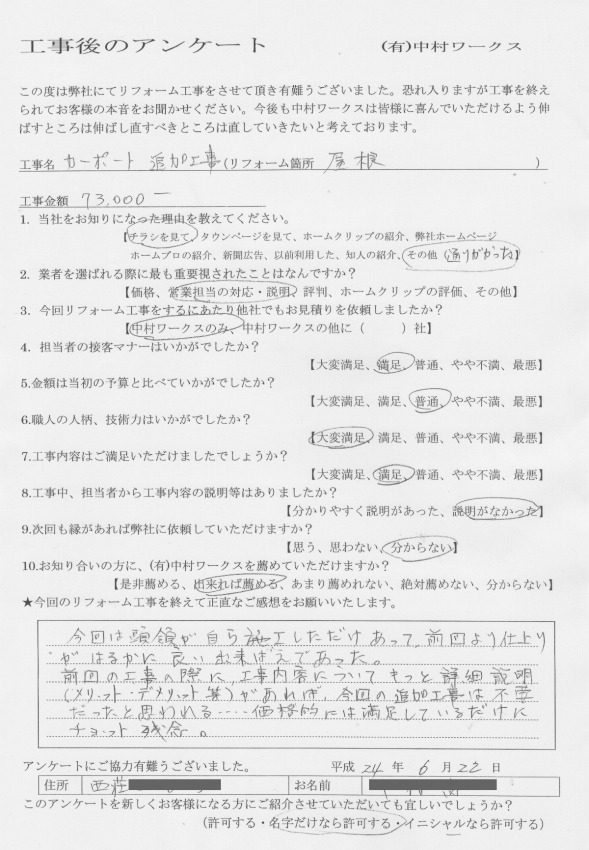 工事後のアンケート (有)中村ワークス
この度は弊社にてリフォーム工事をさせて頂き有難うございました。恐れ入りますが工事を終え
られてお客様の本音をお聞かせください。今後も中村ワークスは皆様に喜んでいただけるよう伸
ばすところは伸ばし直すべきところは直していきたいと考えております。
工事名 カーポート 追加工事(リフォーム箇所 屋根 )
工事金額 73,000−
1. 当社をお知りになった理由を教えてください。
【チラシを見て、タウンページを見て、ホームクリップの紹介、弊社ホームページ
ホームプロの紹介、新聞広告、以前利用した、知人の紹介、その他(通りがかった)】
2. 業者を選ばれる際に最も重要視されたことはなんですか？
【価格、営業担当の対応・説明、評判、ホームクリップの評価、その他】
3. 今回リフォーム工事をするにあたり他社でもお見積りを依頼しましたか？
【中村ワークスのみ、中村ワークスの他に（ ）社】
4. 担当者の接客マナーはいかがでしたか？
【大変満足、満足、普通、やや不満、最悪】
5.金額は当初の予算と比べていかがでしたか？
【大変満足、満足、普通、やや不満、最悪】
6.職人の人柄、技術力はいかがでしたか？
【大変満足、満足、普通、やや不満、最悪】
7.工事内容はご満足いただけましたでしょうか？
【大変満足、満足、普通、やや不満、最悪】
8.工事中、担当者から工事内容の説明等はありましたか？
【分かりやすく説明があった、説明がなかった】
9.次回も縁があれば弊社に依頼していただけますか？
【思う、思わない、分からない】
10.お知り合いの方に、(有)中村ワークスを薦めていただけますか？
【是非薦める、出来れば薦める、あまり薦めれない、絶対薦めない、分からない】
★今回のリフォーム工事を終えて正直なご感想をお願いいたします。
今回は頭領が自ら施工しただけあって、前回より仕上り
がはるかに良い出来ばえであった。
前回の工事の際に、工事内容についてもっと詳細説明
(メリット・デメリット等)があれば、今回の追加工事は不要
だったと思われる‥‥価格的には満足しているだけに
チョット残念。
アンケートにご協力有難うございました。 平成 24 年 6 月 22 日
住所 西荘 お名前
このアンケートを新しくお客様になる方にご紹介させていただいても宜しいでしょうか？
(許可する・名字だけなら許可する・イニシャルなら許可する)